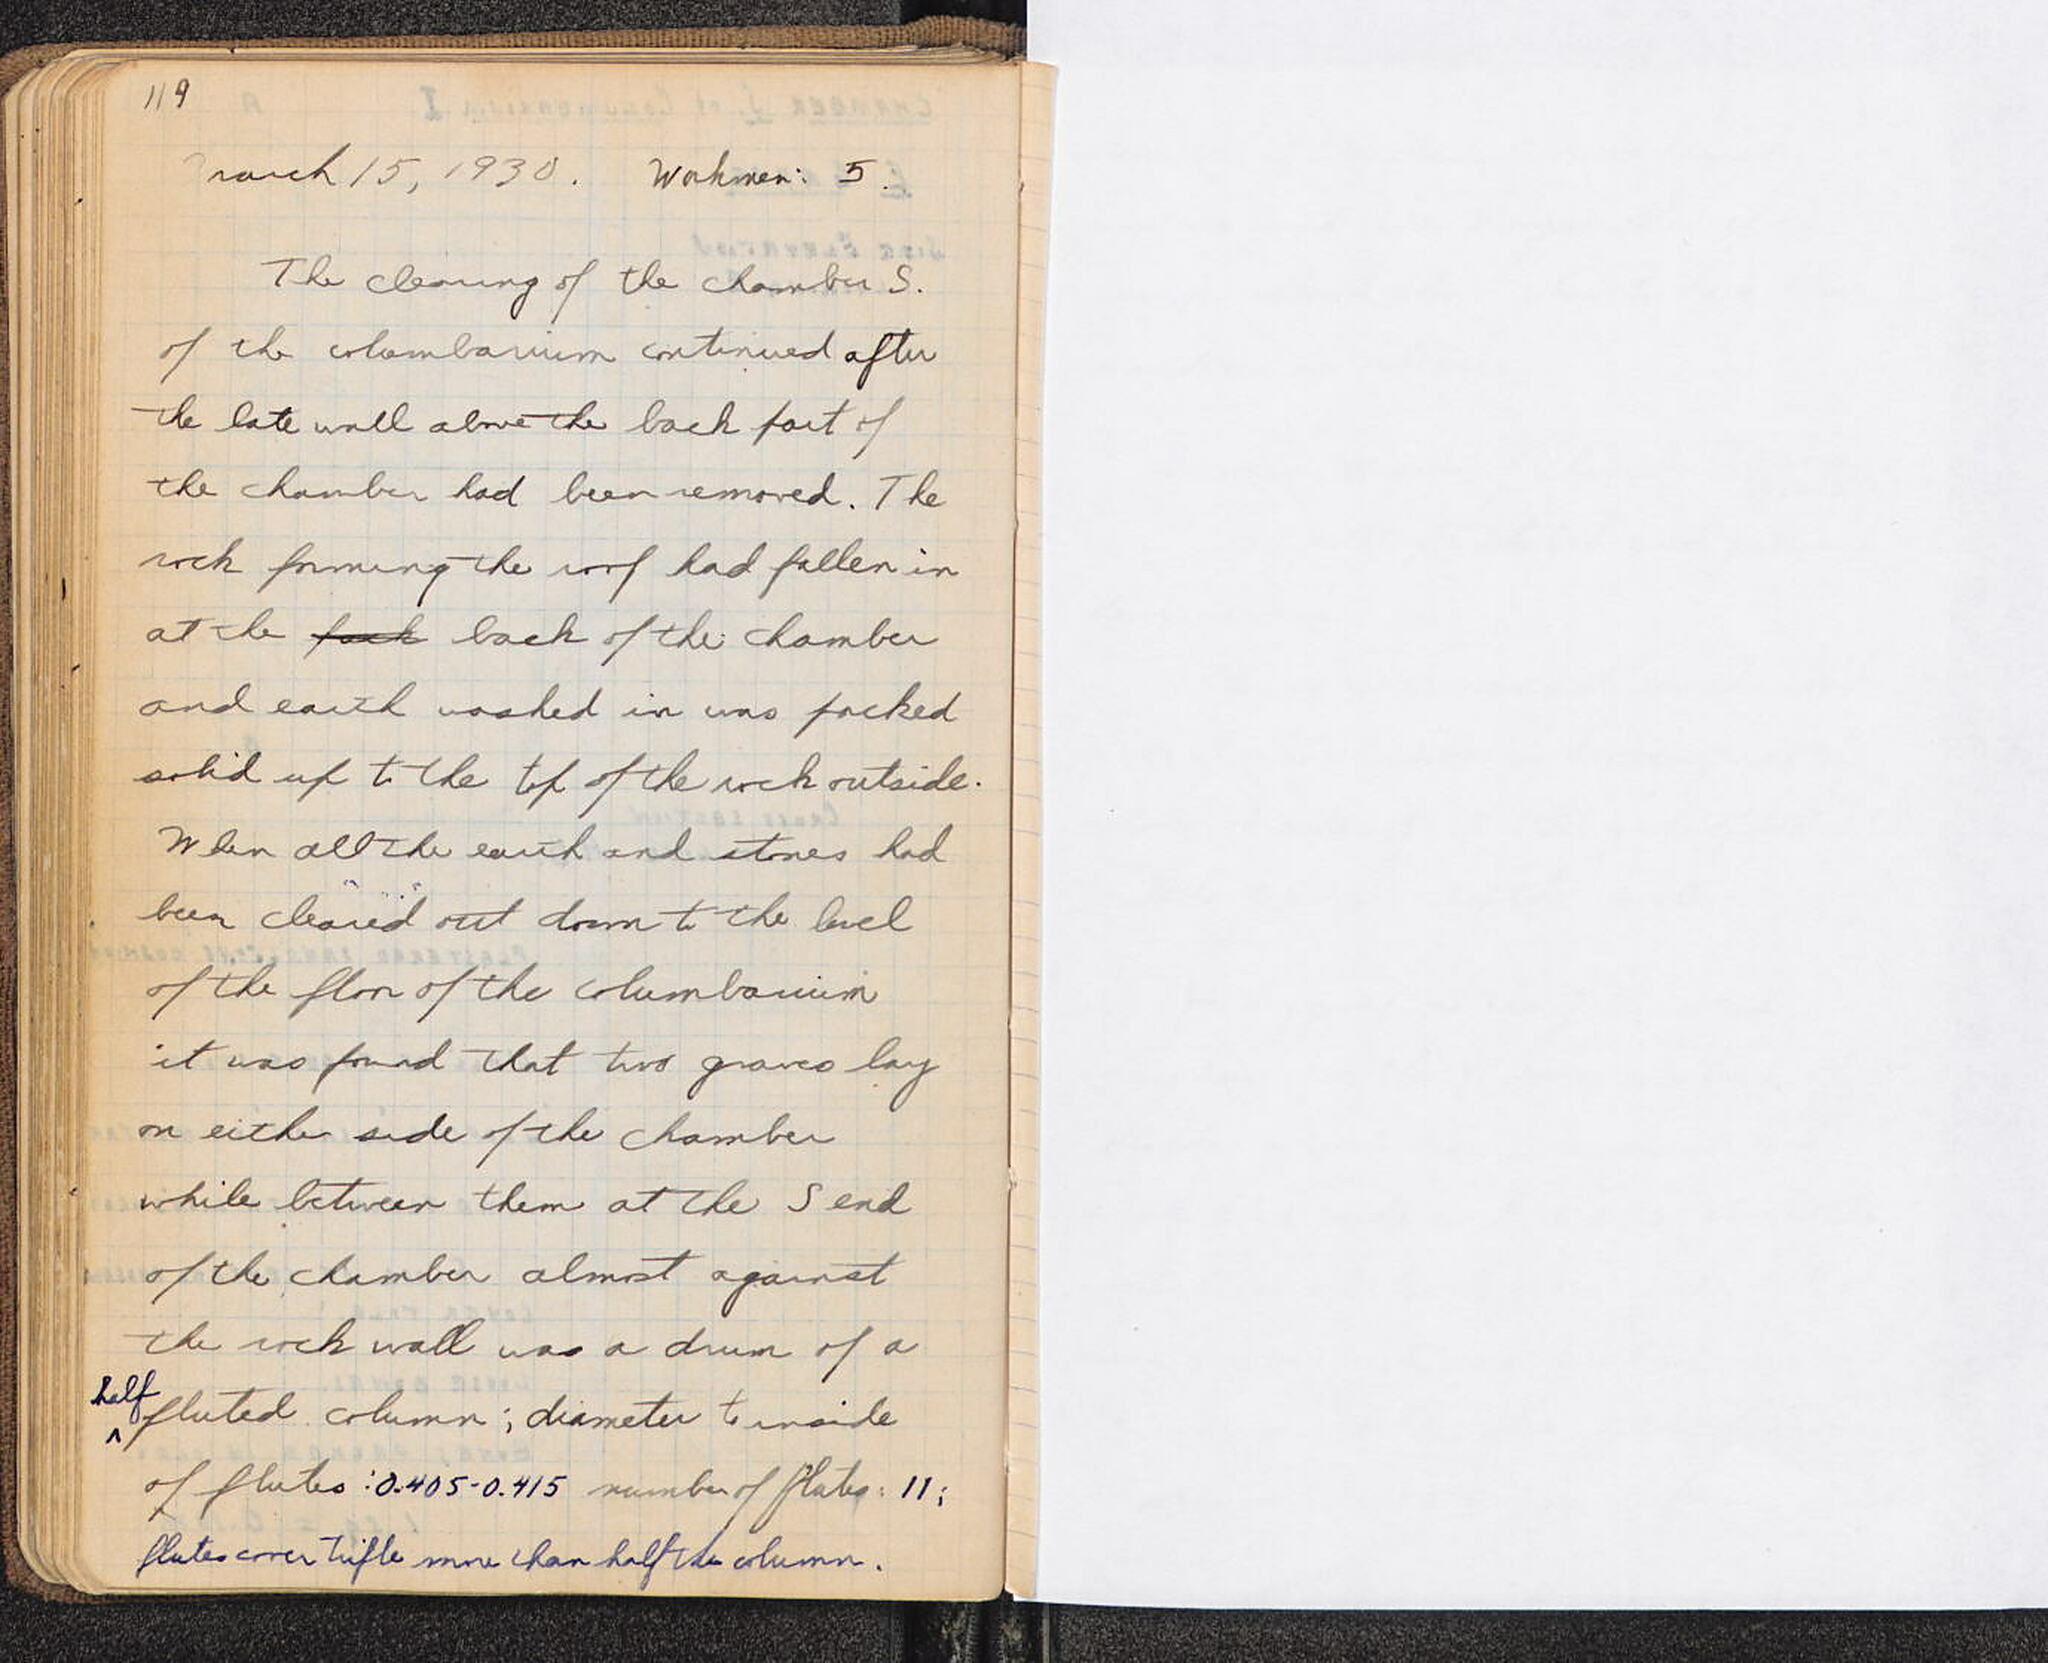 119
March 15, 1930. Workmen: 5.
The clearing of the chamber S.
of the columbarium continued after
the late wall above the back part of
the chamber had been removed. The
rock forming the roof had fallen in
at the back of the chamber
and earth washed in was packed
solid up to the top of the rock outside.
When all the earth and stones had
been cleared out down to the level
of the floor of the columbarium
it was found that two graves lay
on either side of the chamber
while between them at the S end
of the chamber almost against
the rock wall was a drum of a
half
fluted column; diameter to inside
of flutes: 0.405-0.415 number of flutes: 11;
flutes cover trifle more than half the column.